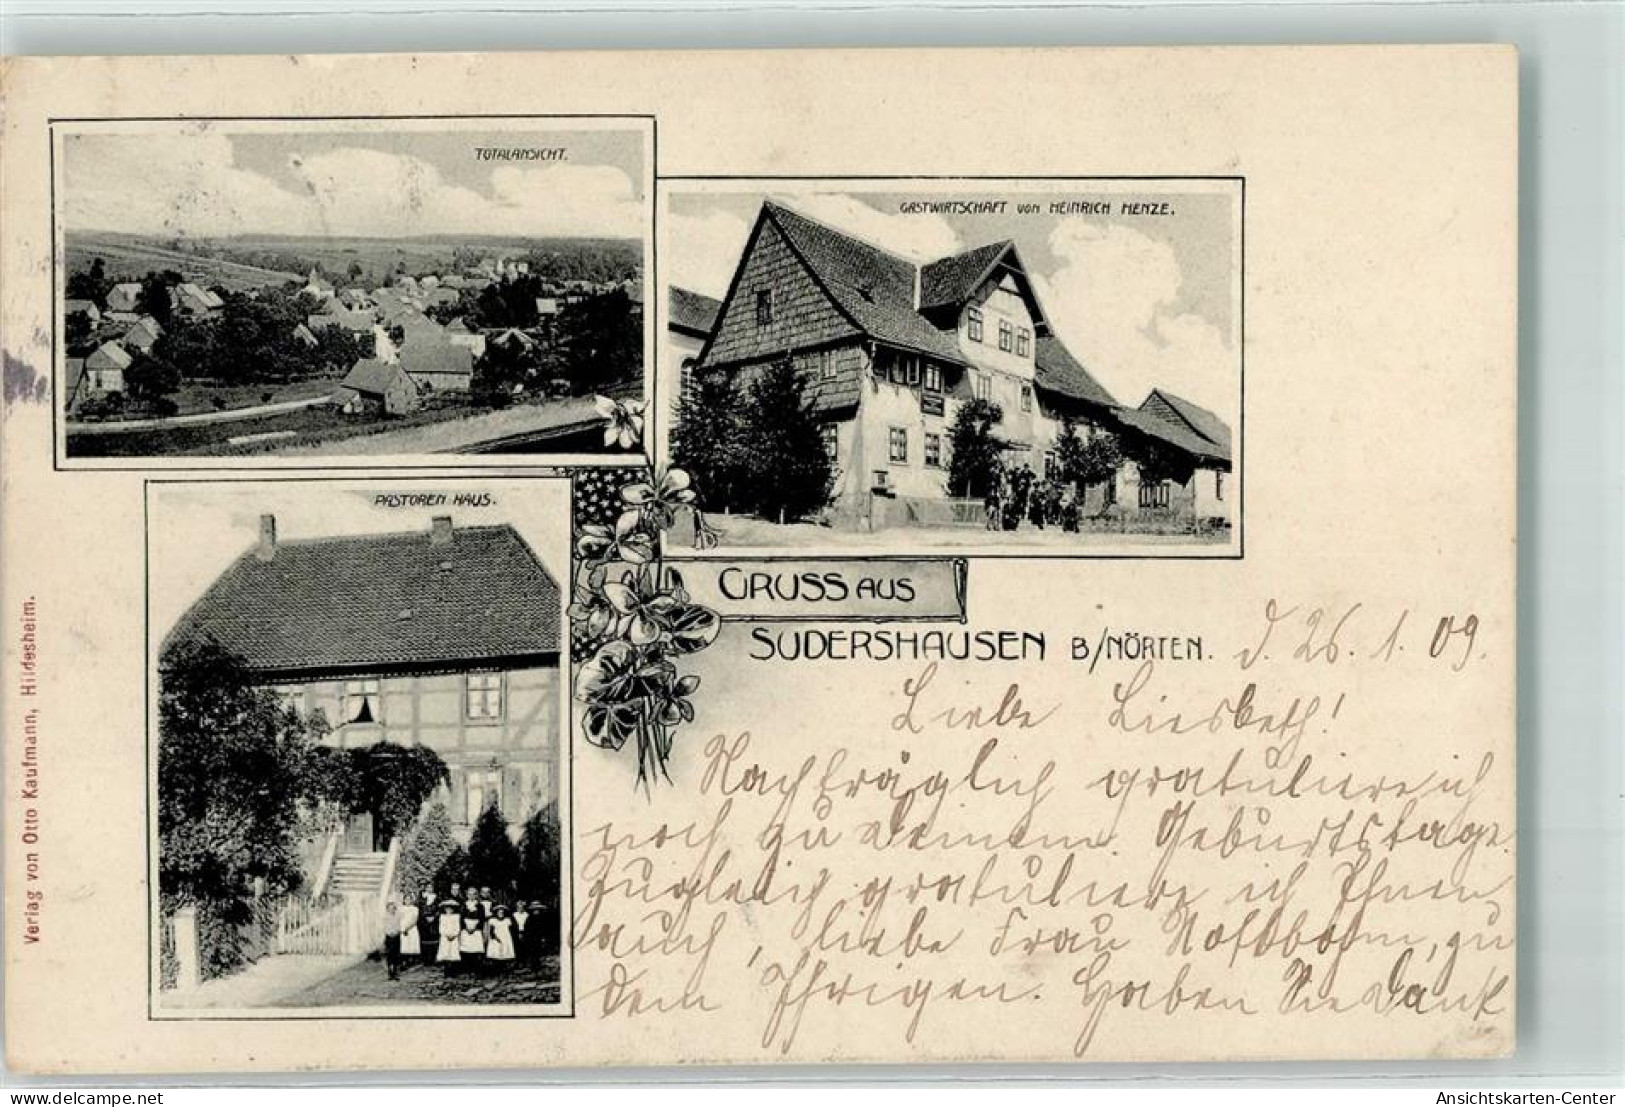 TOTALANSICHT.
GASTWIRTSCHAFT VON HEINRICH HENZE.
PASTOREN HAUS.
GRUSS AUS
SUDERSHAUSEN B/NÖRTEN.
d. 26. 1. 09.
Liebe Liesbeth!
Nachträglich gratuliere ich
noch zu deinem Geburtstage.
Zugleich gratuliere ich Ihnen
auch, liebe Frau zu
dem Ihrigen. Haben Sie Dank
Verlag von Otto Kaufmann, Hildesheim.
www.delcampe.net
Ansichtskarten-Center